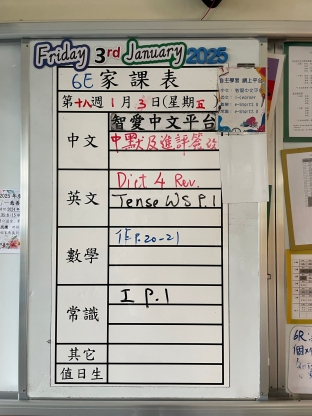 Friday 3rd January 2025
6E 家課表
第十八週 1月3日(星期五)
中文
智愛中文平台
中默及進評簽改
英文
Dict 4 Rev.
Tense WS P.1
數學
作P.20-21
常識
I P.1
其它
值日生
自主學習 網上平台
6R: